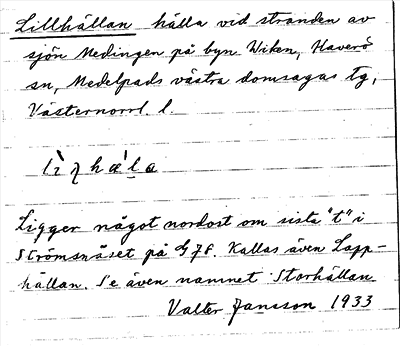 Lillhällan hälla vid stranden av
sjön Medingen på byn Wiken, Haverö
sn, Medelpads västra domsagas tg,
Västernorrl. l.
Ligger något nordost om sista "t" i
Strömsnäset på G78. Kallas även Lapp-
hällan. Se även namnet Storhällan
Valter Jansson 1933